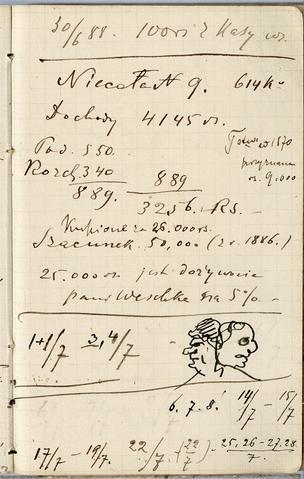 30/6 88. 100 rs z Kasy wz.
9. 614 K-
Dochody 4145 rs.
Pod. 550.
Rozch. 340
889. 889
3256. RS. -
1570
przyznana
rs. 9.000
Kupione za 26.000 rs
Szacunek 50,000 (z r. 1886.)
25.000 rs jest dożywocie
pani Weschke na 5% -
1+1/7 3,4/7
6. 7. 8. 14/7 - 15/7
17/7 - 19/7. 22/7 (22/7) - 25, 26 - 27. 28./7.